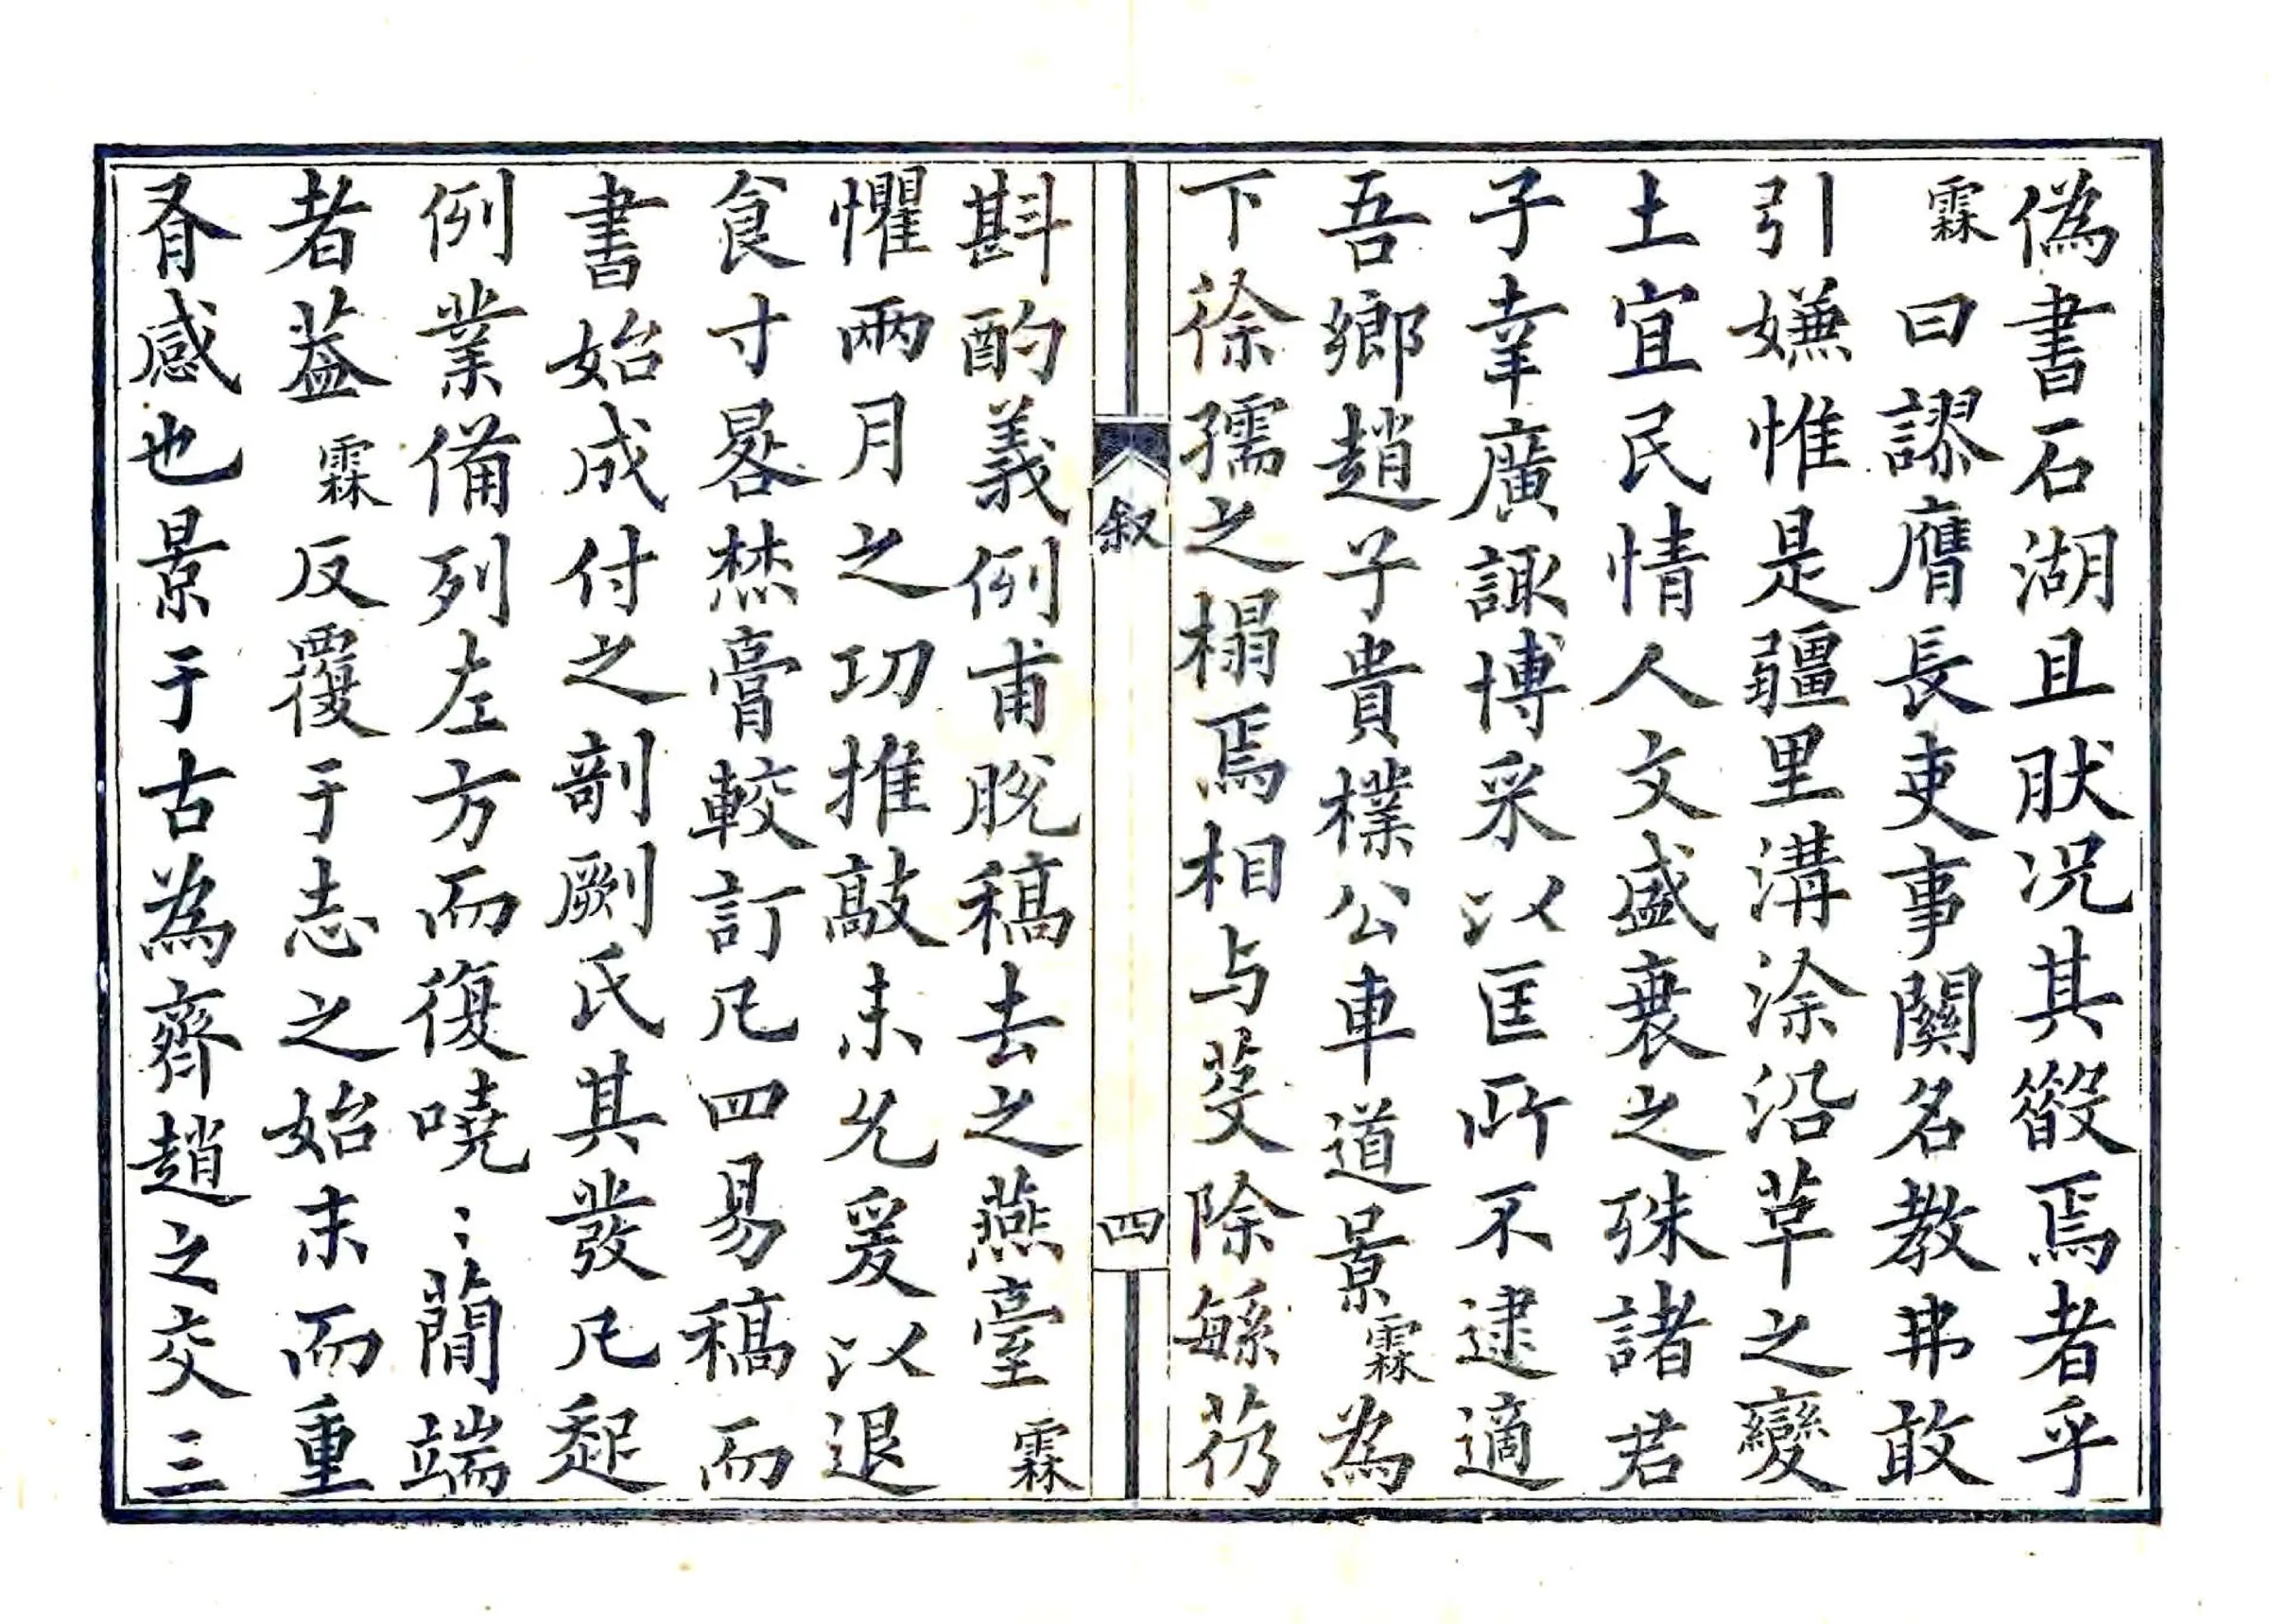 偽書石湖且肰况其骰焉者乎
霖曰謬膺長吏事關名教弗敢
引嫌惟是疆里溝涂沿革之變
土宜民情人文盛衰之殊諸君
子幸廣諏博采以匡所不逮適
吾鄉趙子貴樸公車道景霖為
下徐孺之榻焉相与芟除緐芿
叙
四
斟酌義例甫脫稿去之燕臺霖
懼兩月之功推敲未允爰以退
食寸晷焚膏較訂凡四易稿而
書始成付之剞劂氏其發凡起
例業備列左方而復嘵〻簡端
者葢霖反覆于志之始末而重
有感也景于古為齊趙之交三